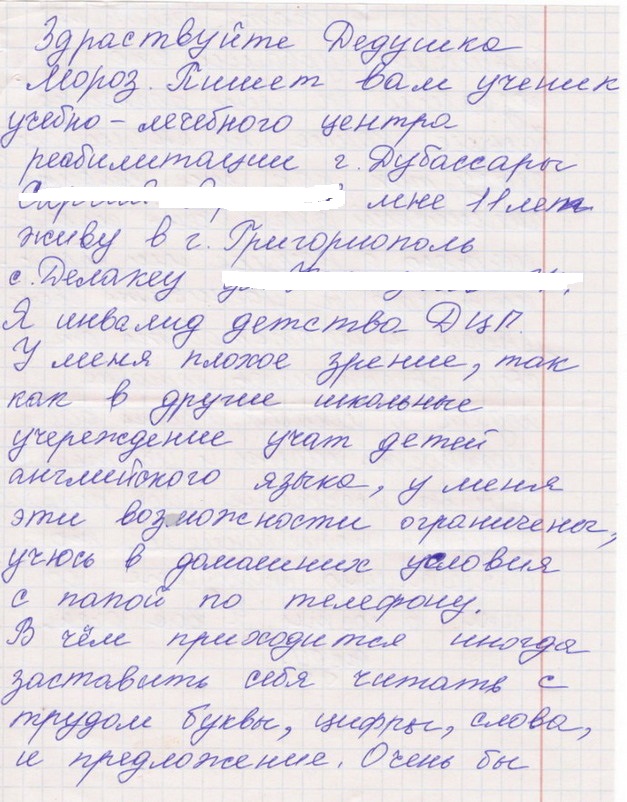 Здраствуйте Дедушка
Мороз. Пишет вам ученик
учебно-лечебного центра
реабилитации г. Дубассары
мне 11 лет
живу в г. Григориополь
с. Делакеу
Я инвалид детства ДЦП.
У меня плохое зрение, так
как в другие школьные
учереждение учат детей
английского языка, у меня
эти возможности ограничены,
учюсь в домашних условия
с папой по телефону.
В чём приходится иногда
заставить себя читать с
трудом буквы, цифры, слова,
и предложение. Очень бы